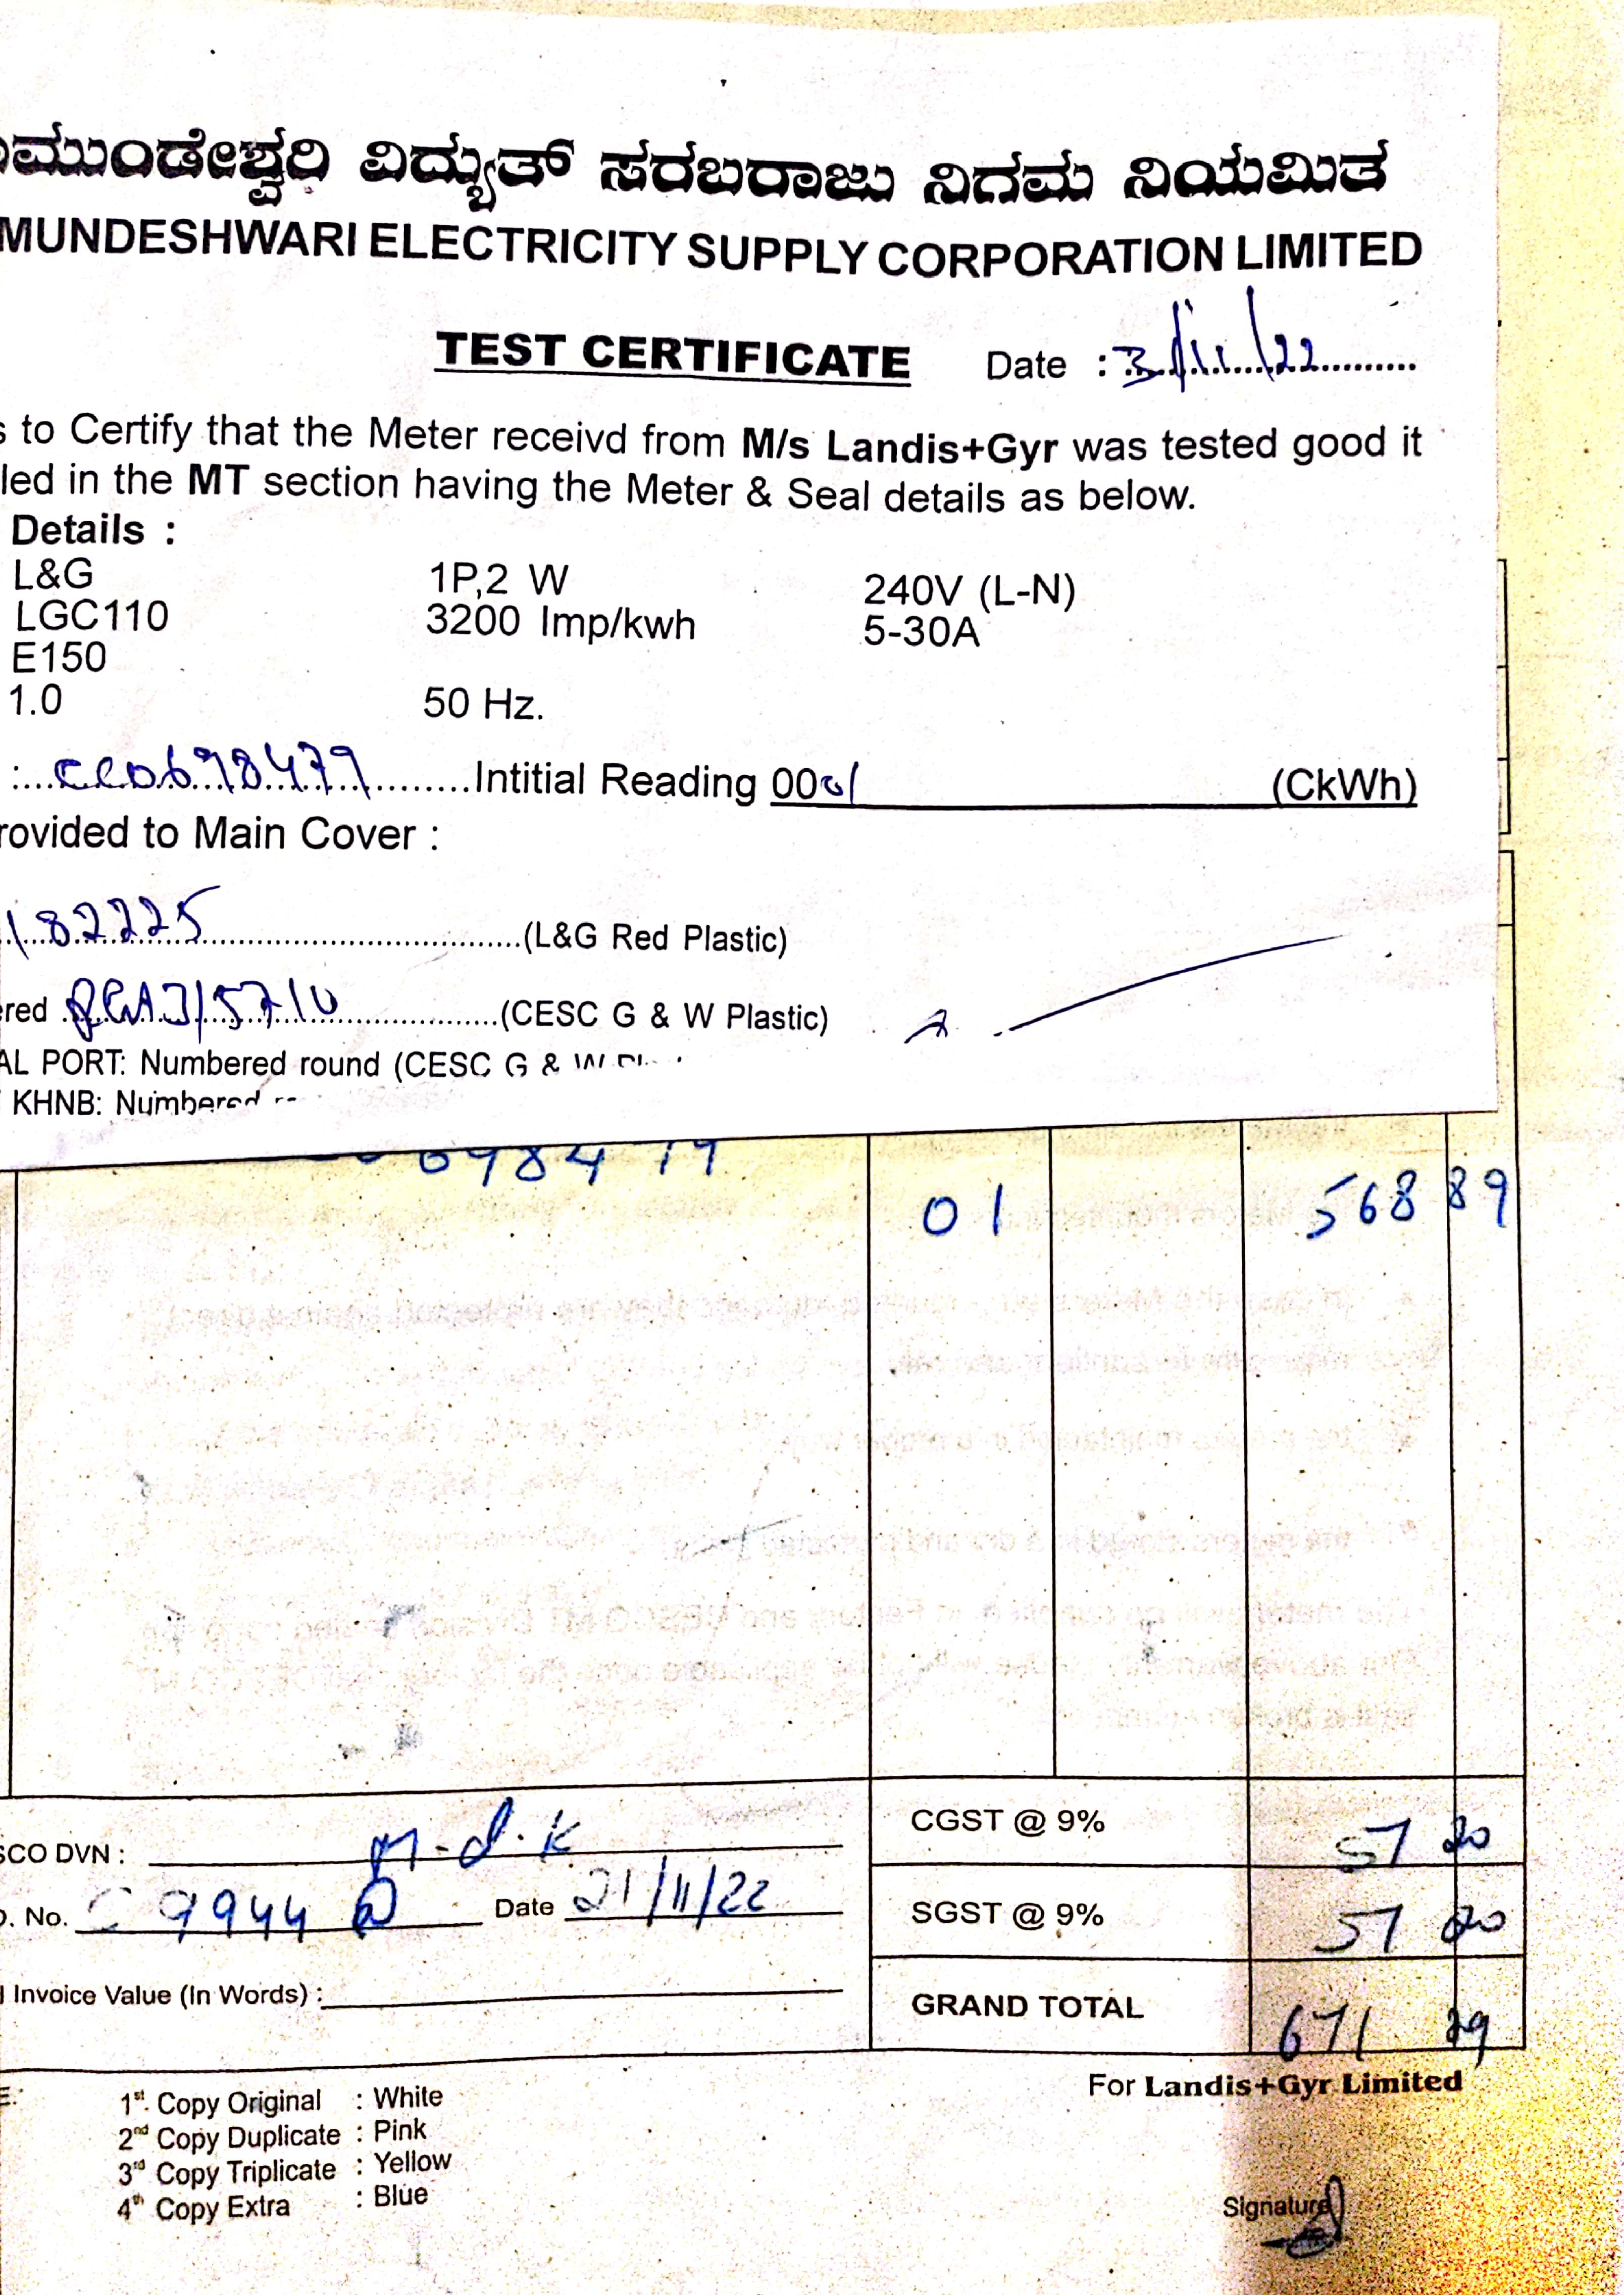 ಾಮುಂಡೇಶ್ವರಿ ವಿದ್ಯುತ್ ಸರಬರಾಜು ನಿಗಮ ನಿಯಮಿತ
MUNDESHWARI ELECTRICITY SUPPLY CORPORATION LIMITED
TEST CERTIFICATE Date : 3/11/22
s to Certify that the Meter receivd from M/s Landis+Gyr was tested good it
led in the MT section having the Meter & Seal details as below.
Details :
L&G 1P,2 W 240V (L-N)
LGC110 3200 Imp/kwh 5-30A
E150
1.0 50 Hz.
: Intitial Reading 0001 (CkWh)
rovided to Main Cover :
182225 (L&G Red Plastic)
red (CESC G & W Plastic)
AL PORT: Numbered round (CESC G & W
KHNB: Numbered
698479 01 568 89
SCO DVN : M-d-k CGST @ 9% 51 20
O. No. 9944 Date 21/11/22 SGST @ 9% 51 20
l Invoice Value (In Words) : GRAND TOTAL 671 29
For Landis+Gyr Limited
E: 1st. Copy Original : White
2nd Copy Duplicate : Pink
3rd Copy Triplicate : Yellow
4th Copy Extra : Blue
Signature